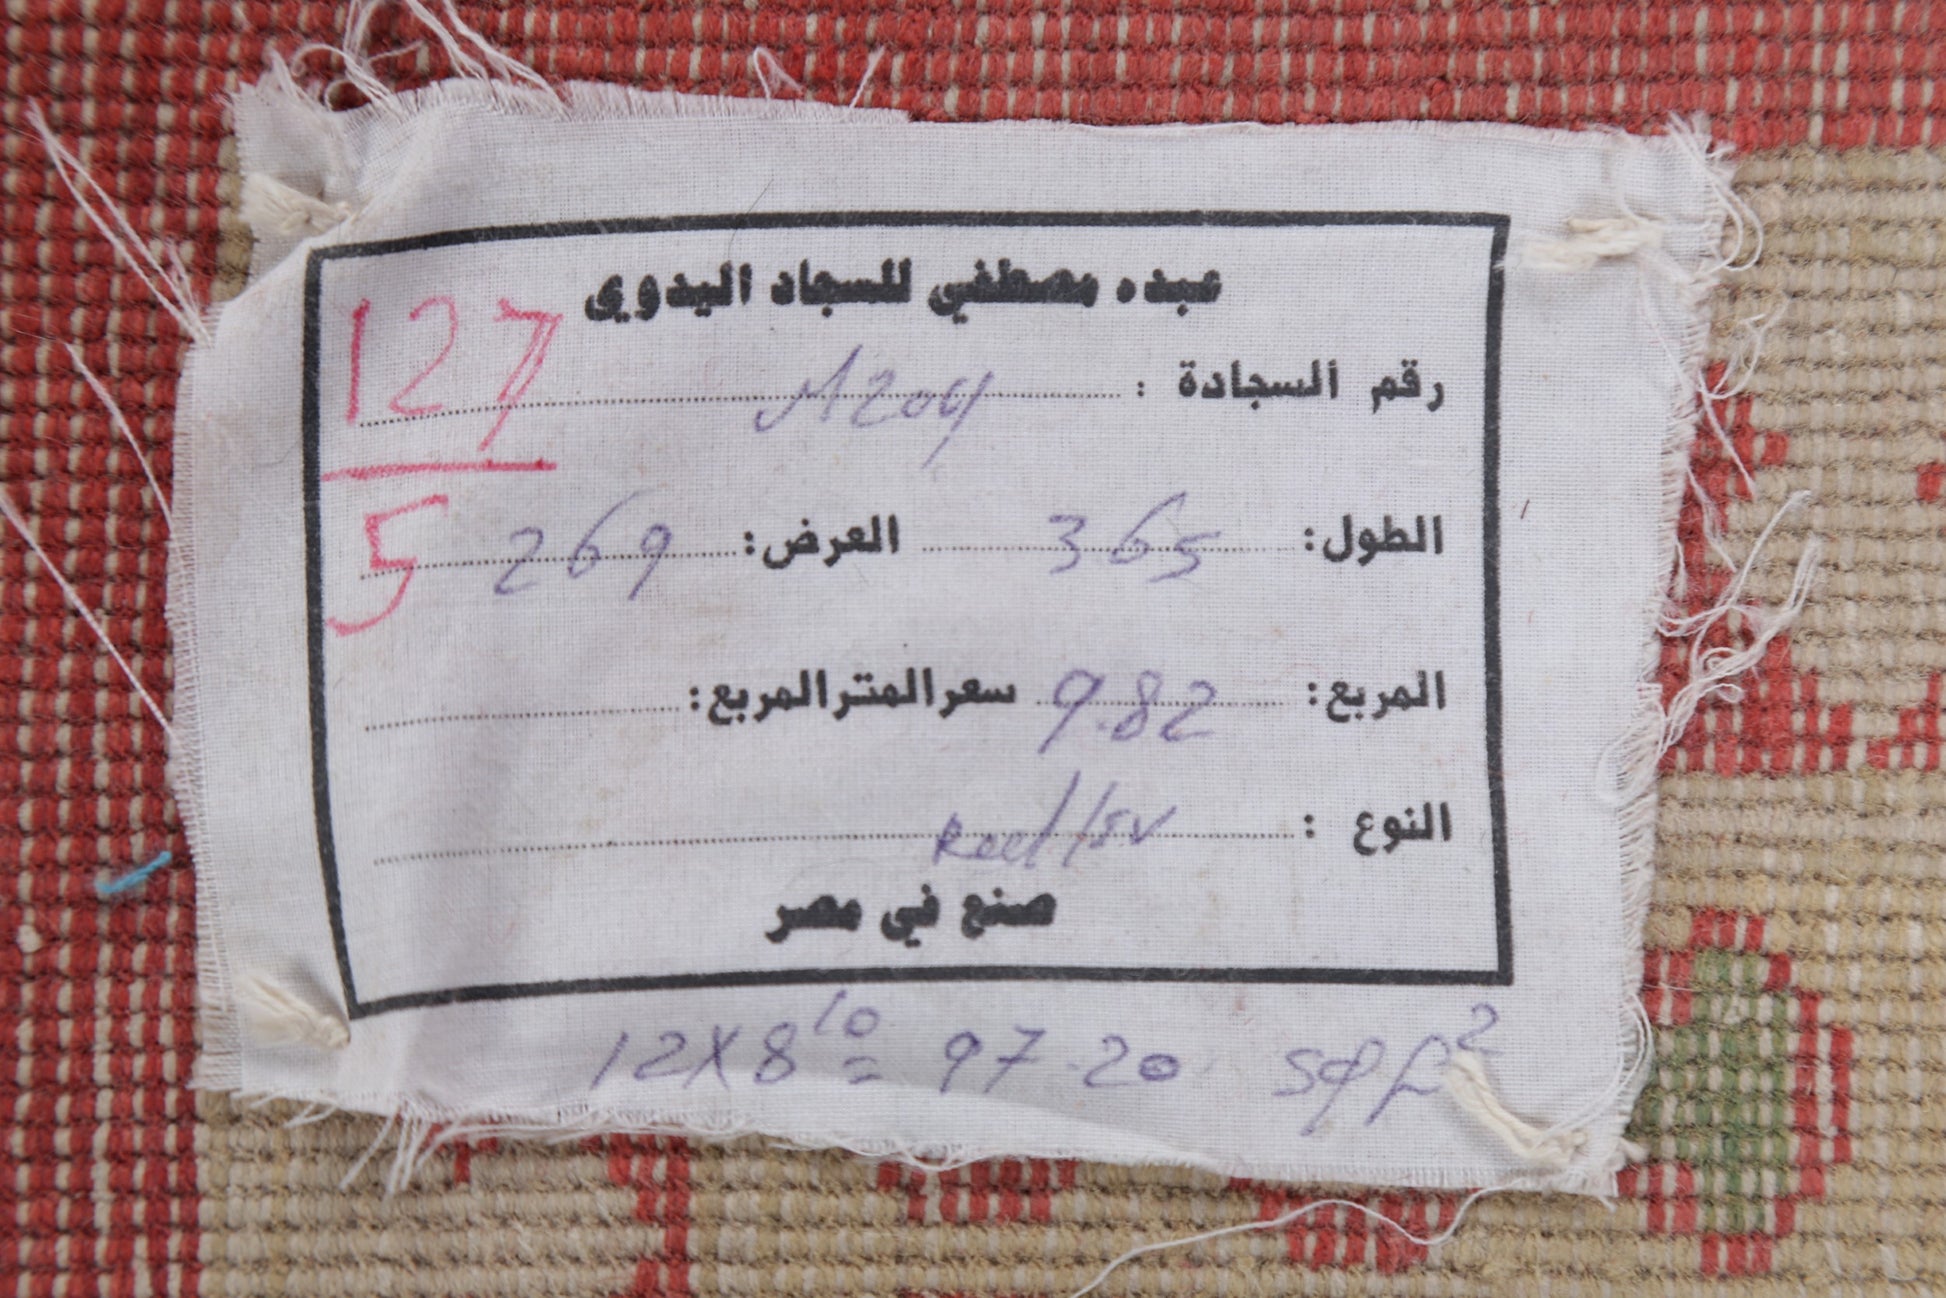 عبده مصطفي للسجاد اليدوي
رقم السجادة : M204
127
5
الطول: 365 العرض: 269
المربع: 9.82 سعر المتر المربع:
النوع : Red / SV
صنع في مصر
12 X 8 10 = 97.20 sq ft 2